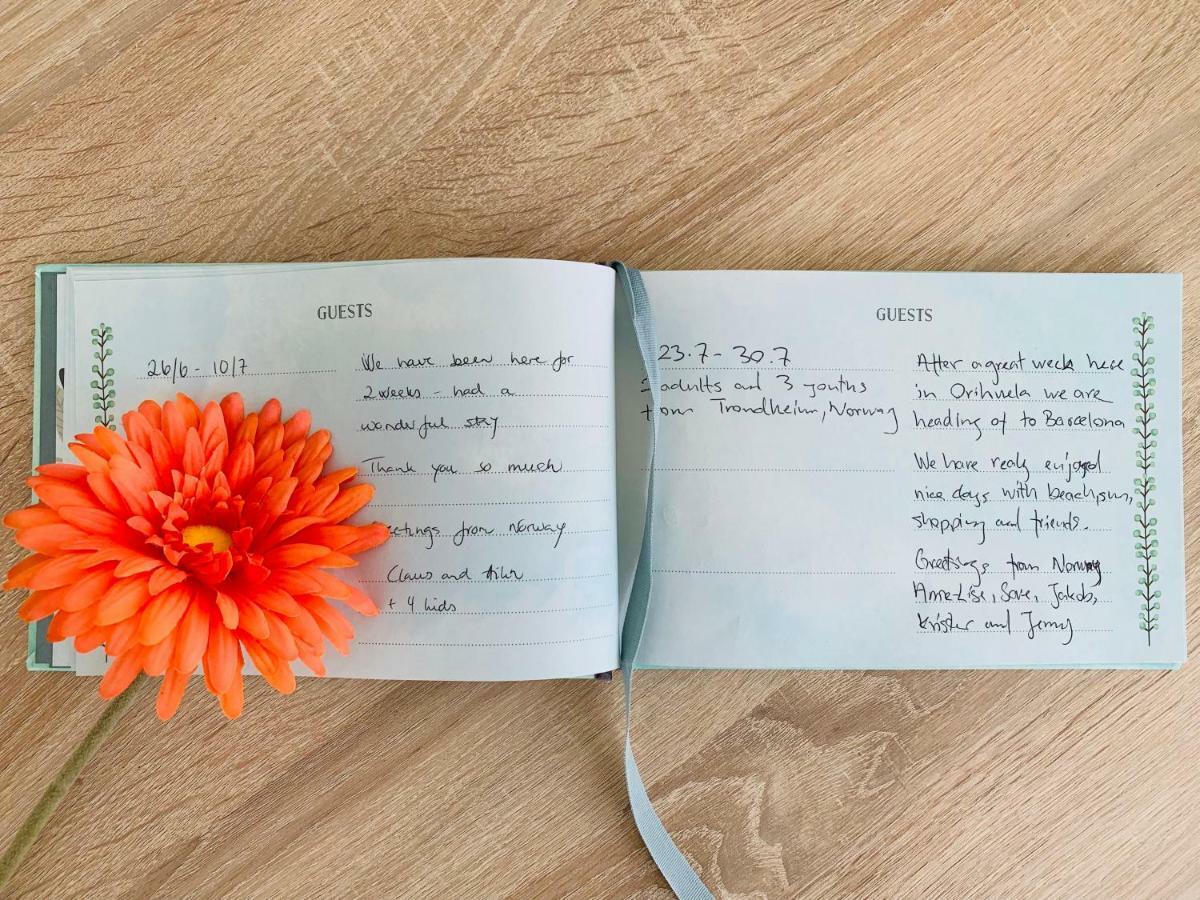 GUESTS
26/6 - 10/7
We have been here for
2 weeks - had a
wonderful stay
Thank you so much
eetings from Norway
Claus and
+ 4 kids
GUESTS
23.7 - 30.7
adults and 3 youths
from Trondheim, Norway
After a great week here
in Orihuela we are
heading of to Barcelona
We have realy enjoyed
nice days with beach, sun,
shopping and friends.
Greetings from Norway
Anne-Lise, Jakob,
Krister and Jenny